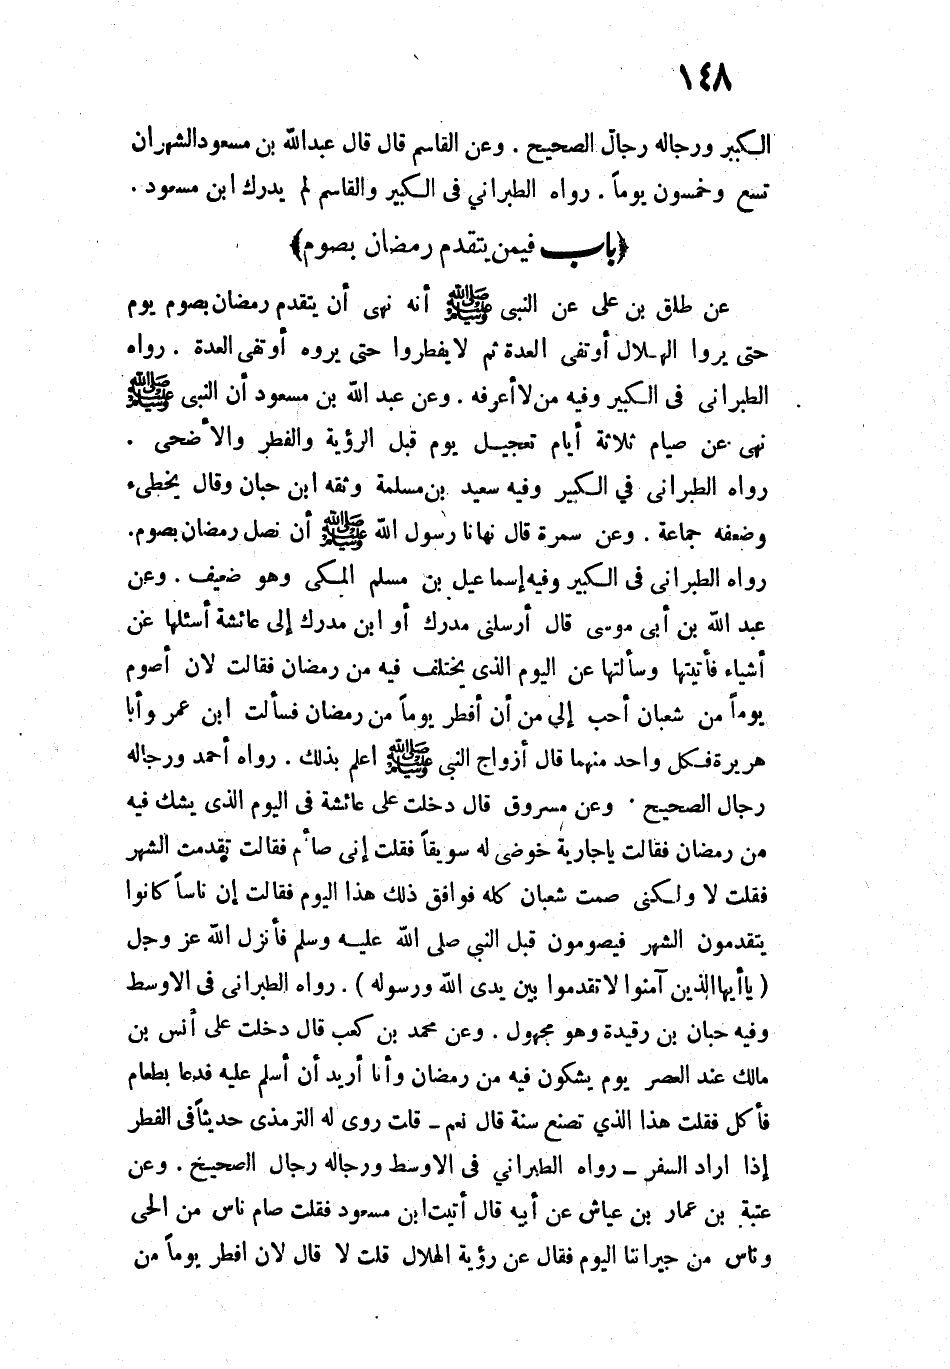 ١٤٨
الكبير ورجاله رجال الصحيح . وعن القاسم قال قال عبدالله بن مسعودالشهران
تسع وخمسون يوماً . رواه الطبراني فى الكبير والقاسم لم يدرك ابن مسعود .
﴿باب فيمن يتقدم رمضان بصوم﴾
عن طلق بن على عن النبى ﷺ أنه نهى أن يتقدم رمضان بصوم يوم
حتى يروا الهلال أوتفى العدة ثم لايفطروا حتى يروه أوتفى العدة . رواه
الطبرانى فى الكبير وفيه من لاأعرفه . وعن عبد الله بن مسعود أن النبى ﷺ
نهى عن صيام ثلاثة أيام تعجيل يوم قبل الرؤية والفطر والأضحى .
رواه الطبرانى في الكبير وفيه سعيد بن مسلمة وثقه ابن حبان وقال يخطىء
وضعفه جماعة . وعن سمرة قال نهانا رسول الله ﷺ أن نصل رمضان بصوم.
رواه الطبرانى فى الكبير وفيه إسماعيل بن مسلم المكى وهو ضعيف . وعن
عبد الله بن أبى موسى قال أرسلنى مدرك أو ابن مدرك إلى عائشة أسئلها عن
أشياء فأتيتها وسألتها عن اليوم الذى يختلف فيه من رمضان فقالت لان أصوم
يوماً من شعبان أحب إلي من أن أفطر يوماً من رمضان فسألت ابن عمر وأبا
هريرة فكل واحد منهما قال أزواج النبى ﷺ اعلم بذلك . رواه أحمد ورجاله
رجال الصحيح . وعن مسروق قال دخلت على عائشة فى اليوم الذى يشك فيه
من رمضان فقالت ياجارية خوضى له سويقاً فقلت إنى صائم فقالت تقدمت الشهر
فقلت لا ولكنى صمت شعبان كله فوافق ذلك هذا اليوم فقالت إن ناساً كانوا
يتقدمون الشهر فيصومون قبل النبي صلى الله عليه وسلم فأنزل الله عز وجل
( ياأيها الذين آمنوا لاتقدموا بين يدى الله ورسوله ) . رواه الطبرانى فى الاوسط
وفيه حبان بن رقيدة وهو مجهول . وعن محمد بن كعب قال دخلت على أنس بن
مالك عند العصر يوم يشكون فيه من رمضان وأنا أريد أن أسلم عليه فدعا بطعام
فأكل فقلت هذا الذي تصنع سنة قال نعم ـ قلت روى له الترمذى حديثاً فى الفطر
إذا اراد السفر ـ رواه الطبراني فى الاوسط ورجاله رجال الصحيح . وعن
عتبة بن عمار بن عياش عن أبيه قال أتيت ابن مسعود فقلت صام ناس من الحى
وناس من جيراننا اليوم فقال عن رؤية الهلال قلت لا قال لان افطر يوماً من